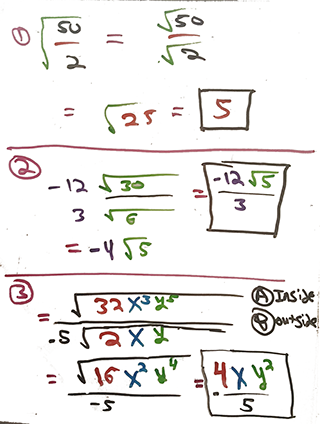 ① √(50/2) = √50/√2
= √25 = 5
② -12√30 / 3√6 = -12√5/3
= -4√5
③ = √(32x³y⁵) / -5√(2xy) Ⓐ Inside Ⓑ outside
= √(16x²y⁴) / -5 = -4xy²/5